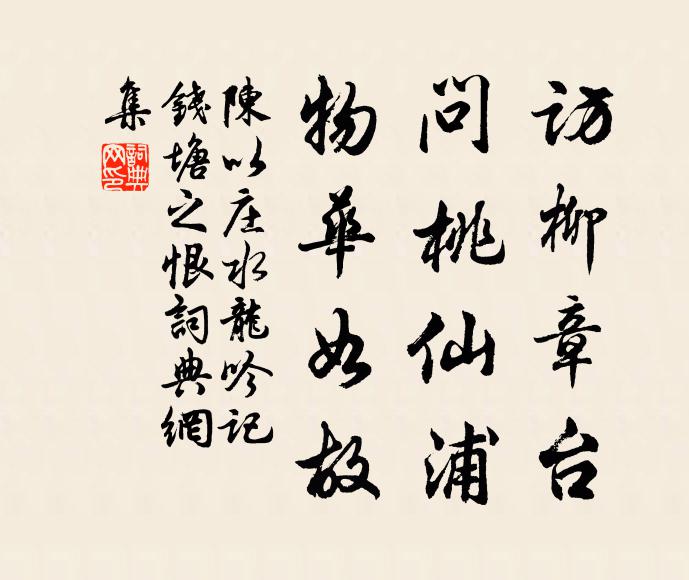 訪柳章台
問桃仙浦
物華如故
陳以庄水龍吟記
錢塘之恨詞典網
集
詞典
网印